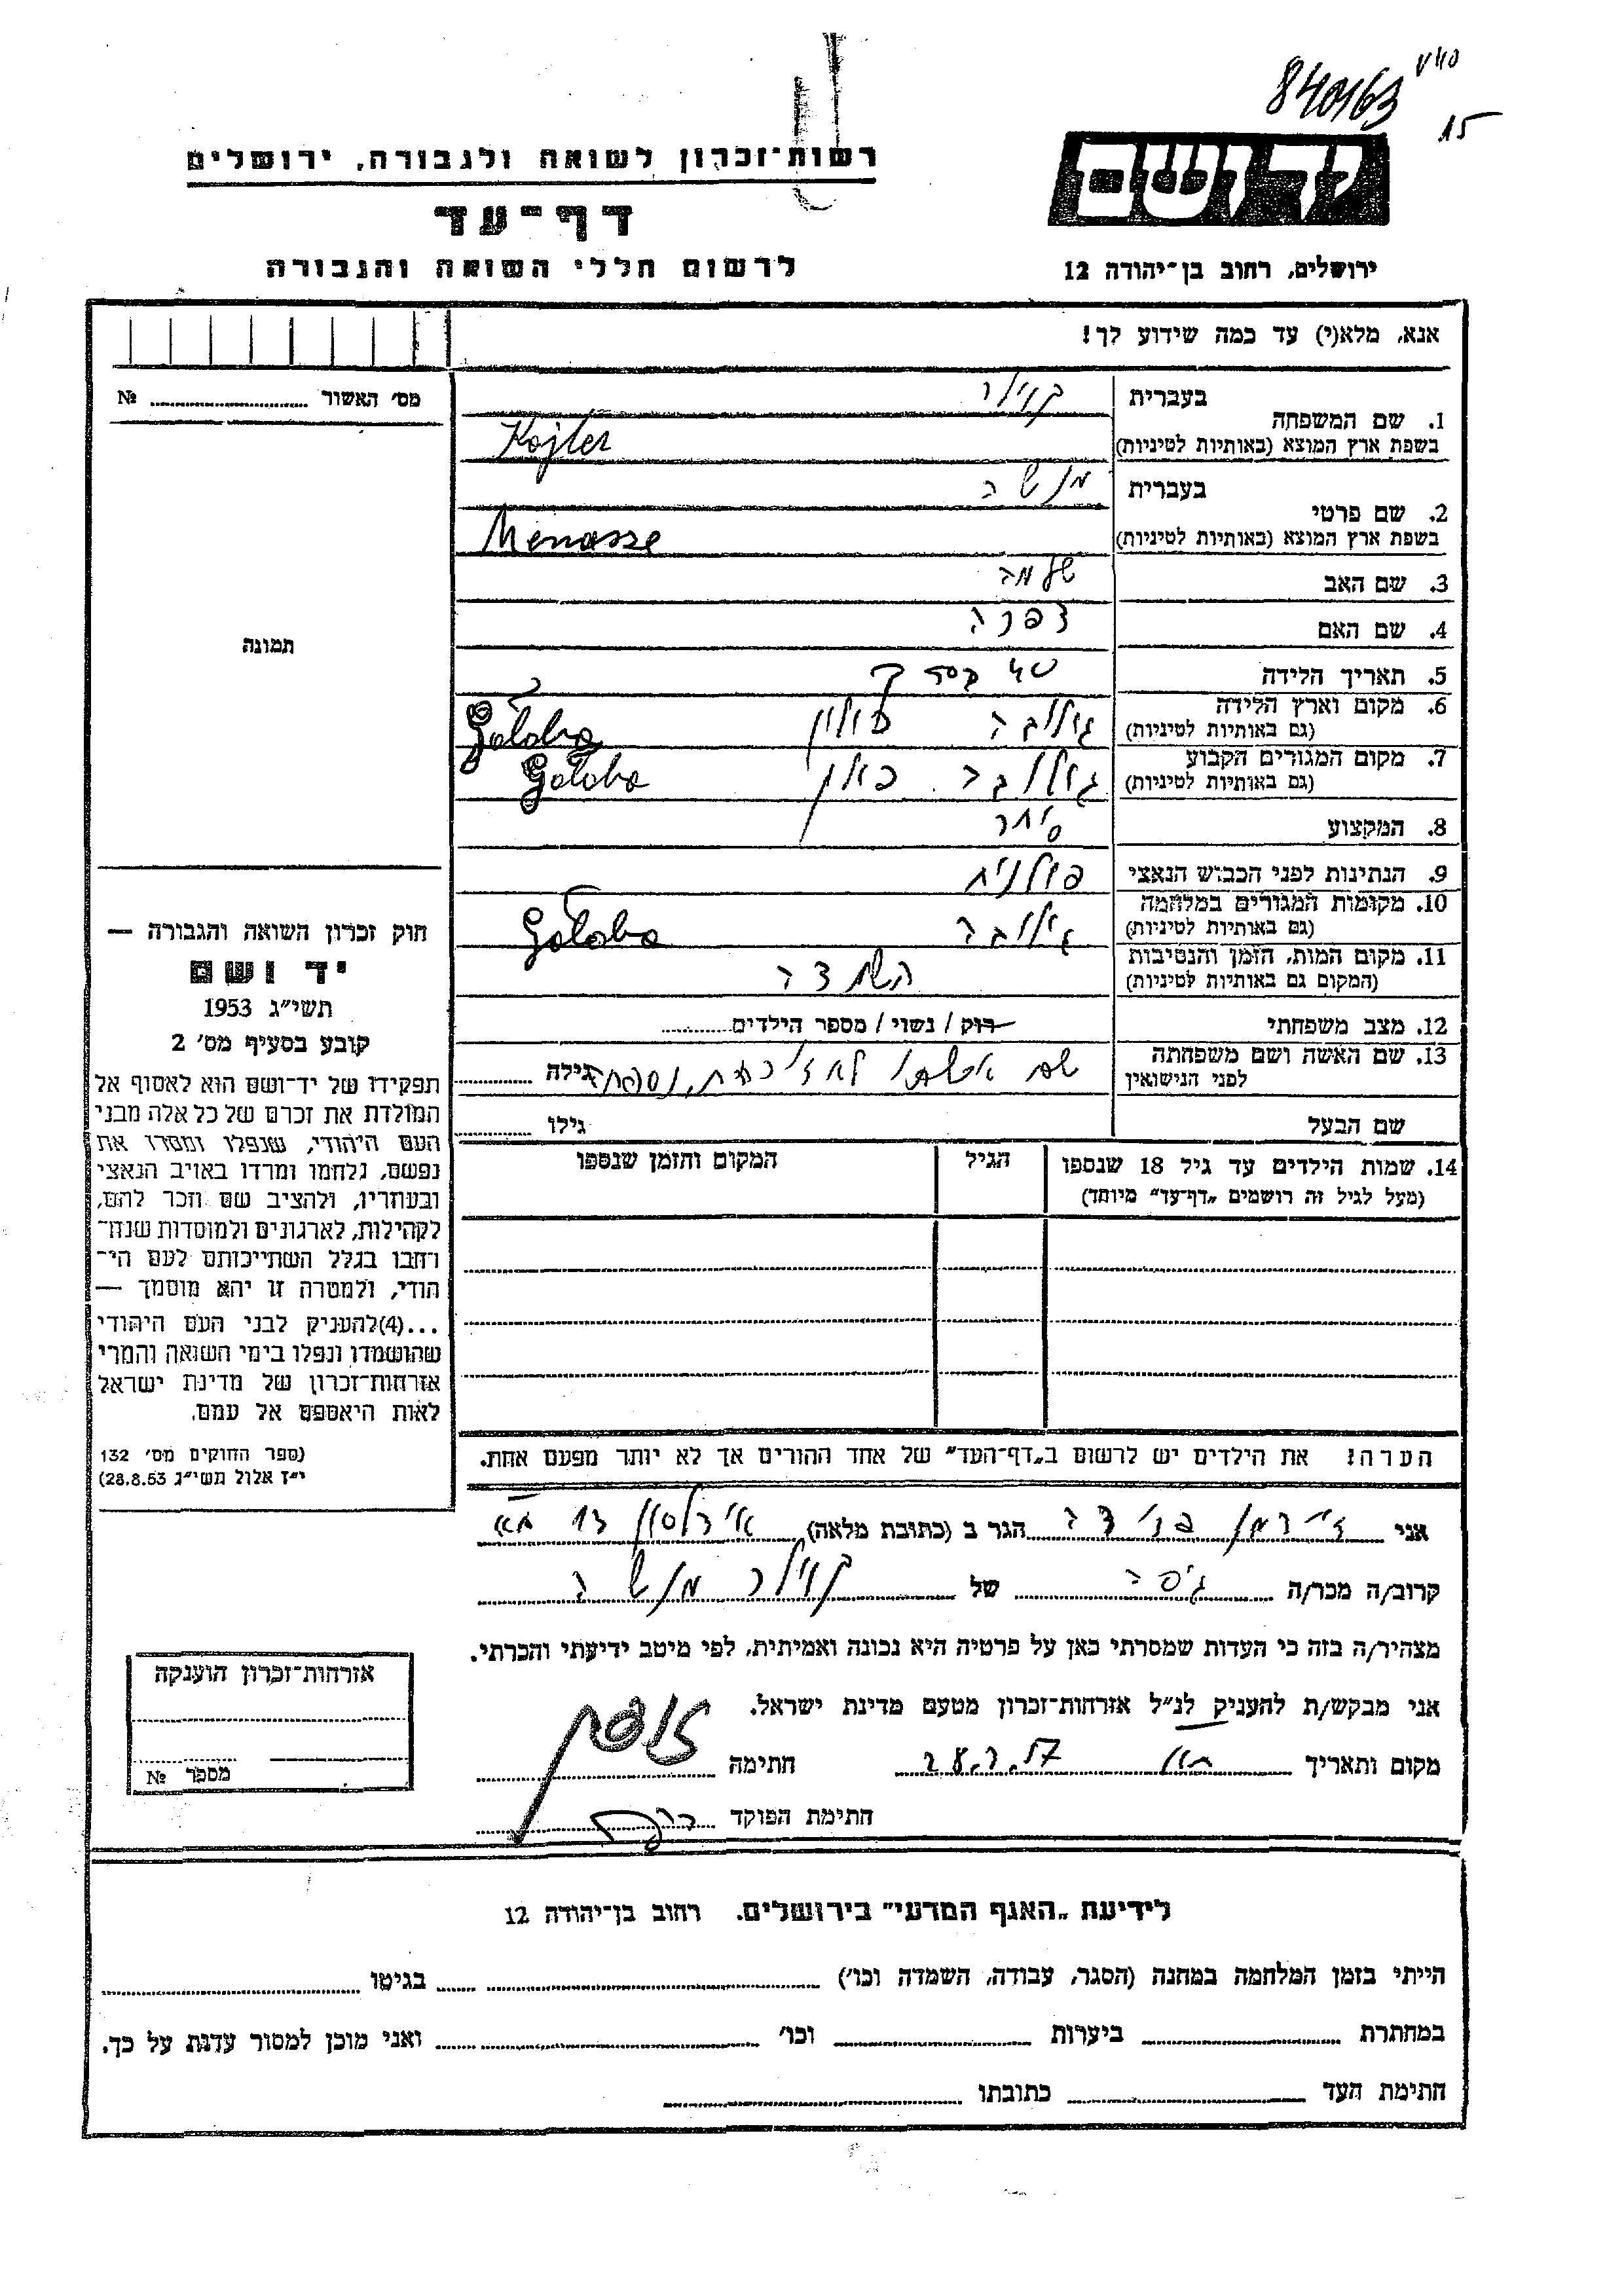 840163
15
רשות-זכרון לשואה ולגבורה, ירושלים
דף-עד
לרשום חללי השואה והגבורה
יד ושם
ירושלים, רחוב בן-יהודה 12
אנא, מלא(י) עד כמה שידוע לך!
מס' האשור № 
1. שם המשפחה בעברית קוילר
בשפת ארץ המוצא (באותיות לטיניות) Kojler
2. שם פרטי בעברית מנשה
בשפת ארץ המוצא (באותיות לטיניות) Menasse
3. שם האב שלמה
4. שם האם צפרה
5. תאריך הלידה
6. מקום וארץ הלידה (גם באותיות לטיניות) גולובה פולין Gołoba
7. מקום המגורים הקבוע (גם באותיות לטיניות) גולובה פולין Gołoba
8. המקצוע סוחר
9. הנתינות לפני הכבוש הנאצי פולנית
10. מקומות המגורים במלחמה (גם באותיות לטיניות) גולובה Gołoba
11. מקום המות, הזמן והנסיבות (המקום גם באותיות לטיניות) השמדה
12. מצב משפחתי רוק / נשוי / מספר הילדים
13. שם האשה ושם משפחתה לפני הנישואין שם אשתו לא זוכרת, נספתה גילה
שם הבעל גילו
14. שמות הילדים עד גיל 18 שנספו (מעל לגיל זה רושמים „דף-עד" מיוחד)
הגיל
המקום והזמן שנספו
הערה: את הילדים יש לרשום ב„דף-העד" של אחד ההורים אך לא יותר מפעם אחת.
תמונה
חוק זכרון השואה והגבורה —
יד ושם
תשי"ג 1953
קובע בסעיף מס' 2
תפקידו של יד-ושם הוא לאסוף אל
המולדת את זכרם של כל אלה מבני
העם היהודי, שנפלו ומסרו את
נפשם, נלחמו ומרדו באויב הנאצי
ובעוזריו, ולהציב שם וזכר להם,
לקהילות, לארגונים ולמוסדות שנח-
רבו בגלל השתייכותם לעם הי-
הודי, ולמטרה זו יהא מוסמך —
...(4)להעניק לבני העם היהודי
שהושמדו ונפלו בימי השואה והמרי
אזרחות-זכרון של מדינת ישראל
לאות היאספם אל עמם.
(ספר החוקים מס' 132
י"ז אלול תשי"ג 28.8.53)
אני הגר ב (כתובת מלאה)
קרוב/ה מכר/ה גיסה של קוילר מנשה
מצהיר/ה בזה כי העדות שמסרתי כאן על פרטיה היא נכונה ואמיתית, לפי מיטב ידיעתי והכרתי.
אני מבקש/ת להעניק לנ"ל אזרחות-זכרון מטעם מדינת ישראל.
מקום ותאריך חתימה
חתימת הפוקד
אזרחות-זכרון הוענקה
מספר №
לידיעת „האגף המדעי" בירושלים. רחוב בן-יהודה 12
הייתי בזמן המלחמה במחנה (הסגר, עבודה, השמדה וכו') בגיטו
במחתרת ביערות וכו' ואני מוכן למסור עדות על כך.
חתימת העד כתובתו